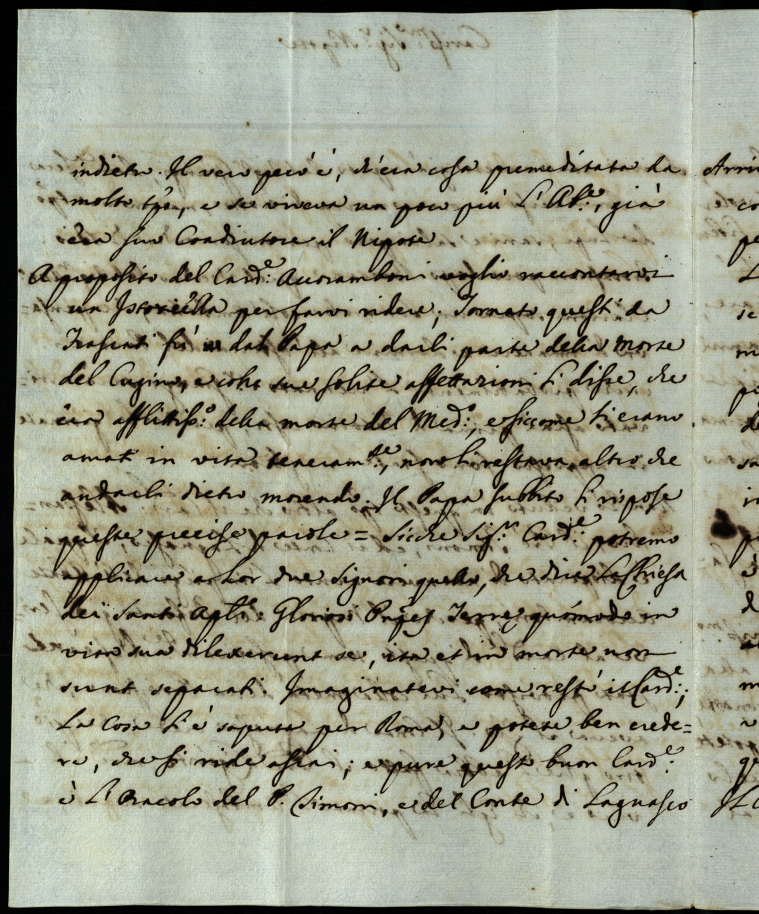 indietro. Il vero però è, ch'era cosa premeditata da
molto tpo, e se viveva un poco più l'Ab.e, già
era suo Coadiutore il Nipote
A proposito del Card.e Accoramboni voglio raccontarvi
un Istoriella per farvi ridere; Tornato questi da
Frascati fù dal Papa a darli parte della morte
del Cugino, e colle sue solite affettazioni li disse, che
era afflittiss.o della morte del Med.o, e siccome s'erano
amati in vita teneram.te, non li restava altro che
andarli dietro morendo. Il Papa subbito li rispose
queste precise parole = Sicche Sig.r Card.e potremo
applicare a lor due Signori quello, che dice la Chiesa
dei Santi Apli: Gloriosi Prņpes Terrę quómodo in
vita sua dilexerunt se, ita et in morte non
sunt separati. Imaginatevi come restò il Card.e;
La cosa si è saputa per Roma, e potete ben crede=
re, che si ride assai; e pure questo buon Card.e
è l'Oracolo del P. Simoni, e del Conte di Lagnasco